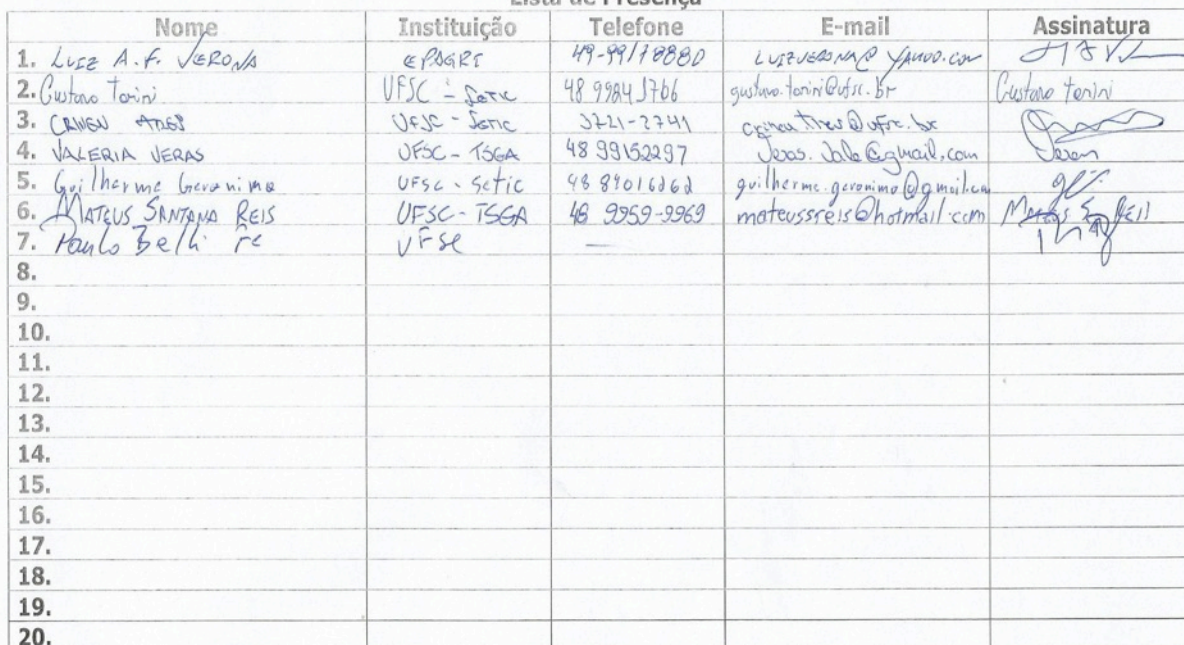 Lista de Presença
Nome Instituição Telefone E-mail Assinatura
1. LUIZ A. F. VERONA EPAGRI 49-99118880 LUIZVERONA@YAHOO.COM
2. Gustavo Tonini UFSC - SeTIC gustavo.tonini@ufsc.br Gustavo Tonini
3. UFSC - SeTIC 3721-2741
4. VALERIA VERAS UFSC - TSGA 48 99152297 Veras
5. Guilherme Geronimo UFSC - Setic guilherme.geronimo@gmail.com
6. MATEUS SANTANA REIS UFSC - TSGA 48 9959-9969 mateussreis@hotmail.com Mateus S. Reis
7. Paulo Belli Fº UFSC —
8.
9.
10.
11.
12.
13.
14.
15.
16.
17.
18.
19.
20.